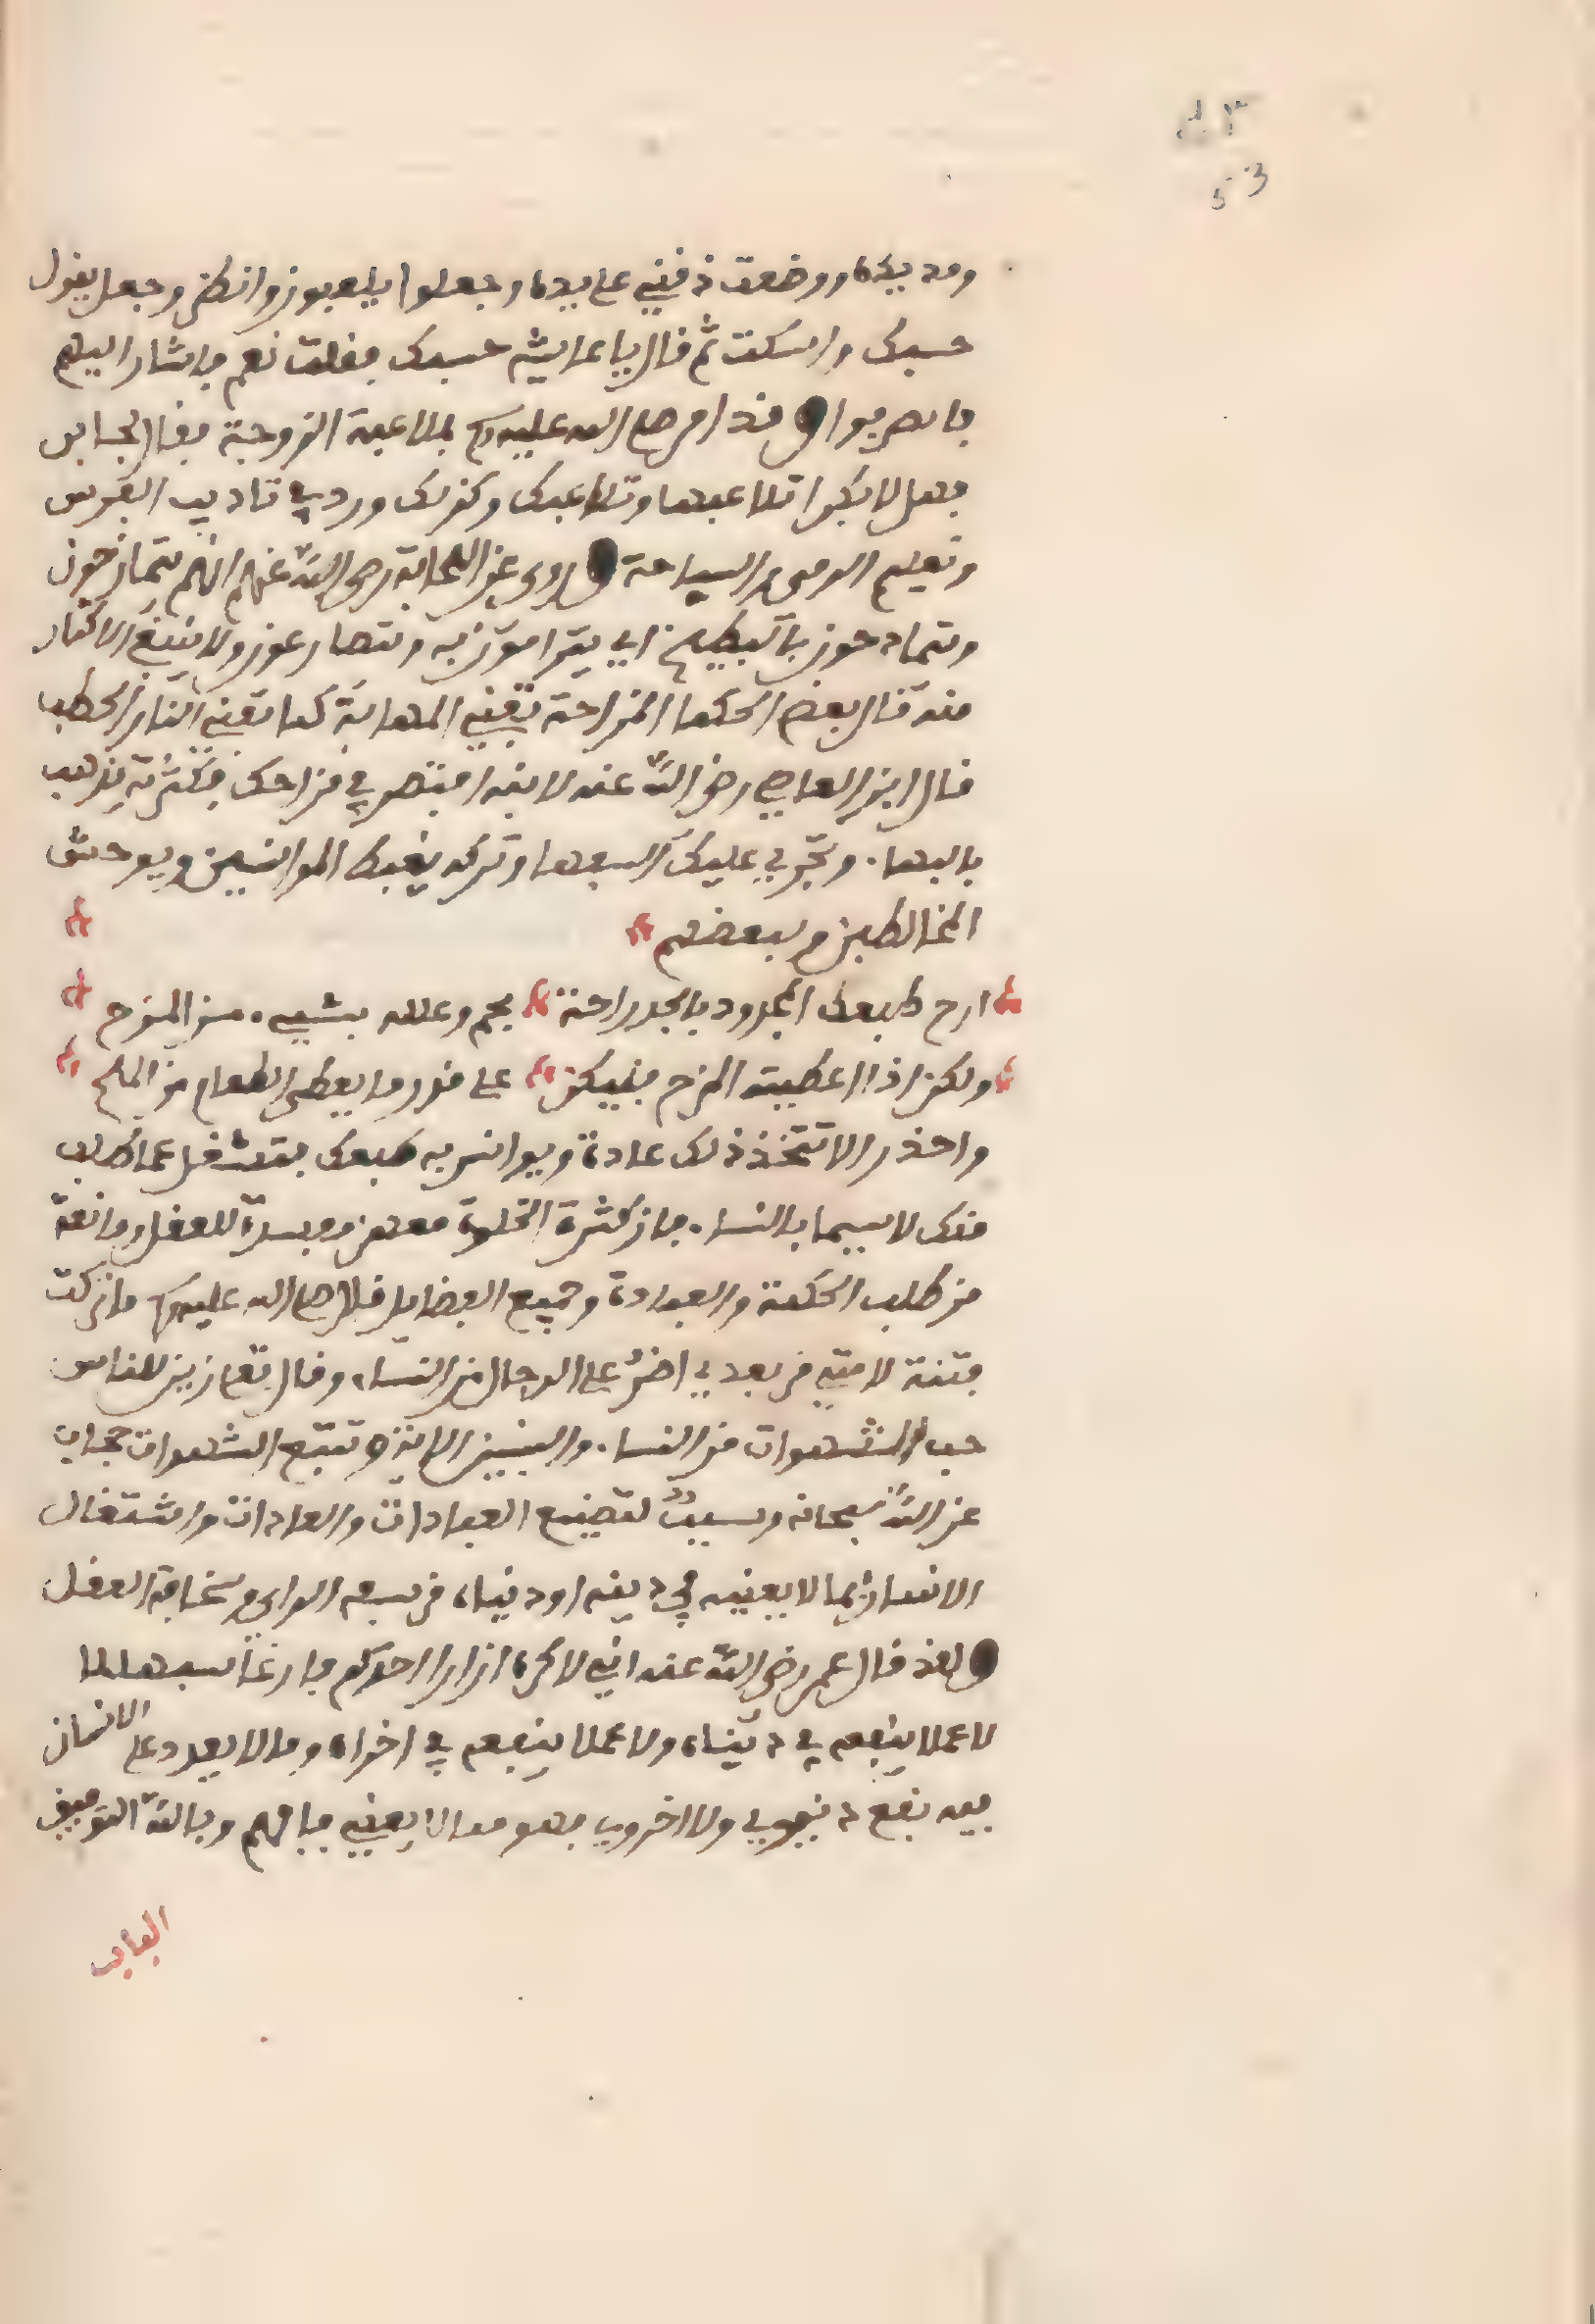 53
ومد يديه ووضعت ذقني على يده وجعلوا يلعبون وانظر وجعل يقول
حسبك واسكت ثم قال يا عايشه حسبك فقلت نعم فاشار اليهم
فانصرفوا وقد امر صلى الله عليه وسلم بملاعبة الزوجة فقال لجابر
فهل لا بكرا تلاعبها وتلاعبك وكذلك ورد في تاديب الفرس
وتعليم الرمي والسباحة وروي عن الصحابة رضي الله عنهم انهم يتمازحون
ويتمادحون بالبطيخ اي يترامون به ويتصارعون ولا ينبغي الاكثار
منه قال بعض الحكما المزاحة تفني المهابة كما تفني النار الحطب
قال ابن العاصي رضي الله عنه لابنه اقتصر في مزاحك فكثرته تذهب
بالبها. وتجري عليك السفها وتركه يغبط الموانسين ويوحش
المخالطين ولبعضهم
ارح طبعك المكدود بالجد راحة يجم وعلله بشيء. من المزح
ولكن اذا اعطيته المزح فليكن على قدر ما يعطى الطعام من الملح
واحذر الا تتخذ ذلك عادة ويوانس به طبعك فتشغل عما طلب
منك لا سيما بالنسا. فان كثرة الخلوة معهن مفسدة للعقل ومانعة
من طلب الحكمة والعبادة وجميع الفضايل قال صلى الله عليه وسلم ما تركت
فتنة لامتي من بعدي اضر على الرجال من النساء وقال تعلى زين للناس
حب الشهوات من النسا. والبنين الاية وتتبع الشهوات حجاب
عن الله سبحانه وسبب لتضييع العبادات والعادات واشتغال
الانسان بما لا يعنيه في دينه او دنياه من سفه الراي وسخافة العقل
ولقد قال عمر رضي الله عنه اني لاكره ان ارا احدكم فارغا سبهللا
لا عملا ينفعه في دنياه ولا عملا ينفعه في اخراه وما لا يعود على الانسان
فيه نفع دنيوي ولا اخروي فهو مما لا يعنيه فافهم وبالله التوفيق
الباب